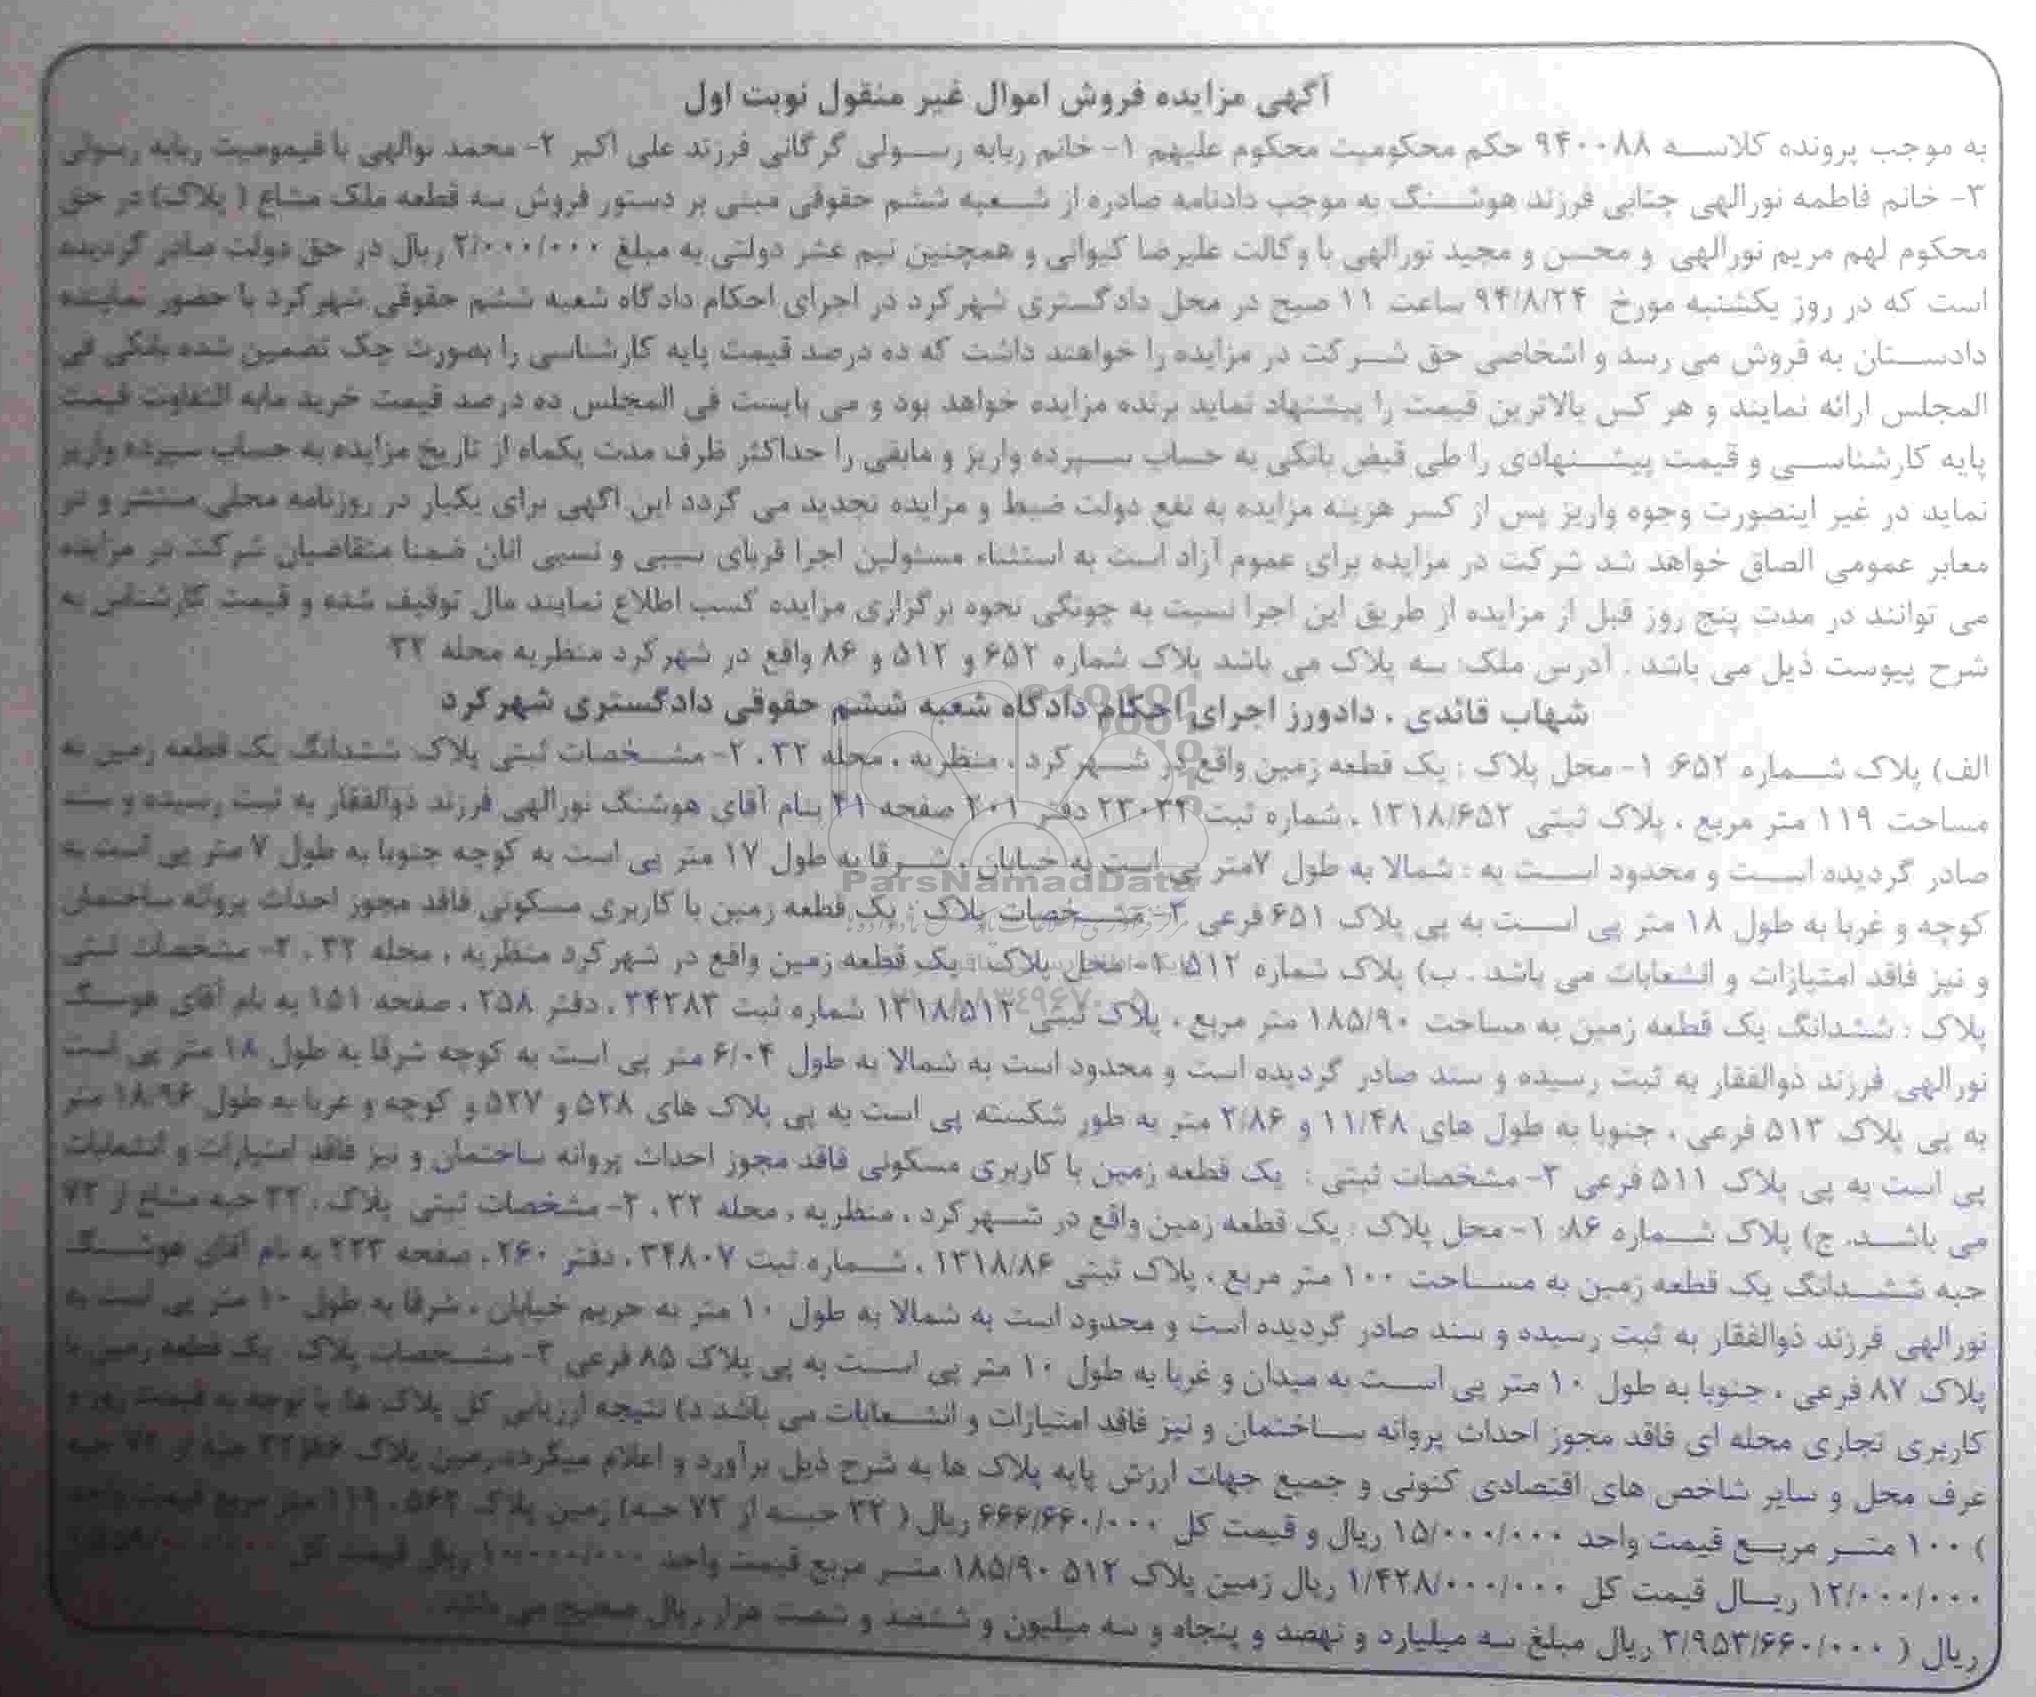 آگهی مزایده فروش اموال غیر منقول نوبت اول
به موجب پرونده کلاسه ۹۴۰۰۸۸ حکم محکومیت محکوم علیهم ۱- خانم ربابه رسولی گرگانی فرزند علی اکبر ۲- محمد نوالهی با قیمومیت ربابه رسولی
۳- خانم فاطمه نورالهی چتایی فرزند هوشنگ به موجب دادنامه صادره از شعبه ششم حقوقی مبنی بر دستور فروش سه قطعه ملک مشاع ( پلاک) در حق
محکوم لهم مریم نورالهی و محسن و مجید نورالهی با وکالت علیرضا کیوانی و همچنین نیم عشر دولتی به مبلغ ۲/۰۰۰/۰۰۰ ریال در حق دولت صادر گردیده
است که در روز یکشنبه مورخ ۹۴/۸/۲۴ ساعت ۱۱ صبح در محل دادگستری شهرکرد در اجرای احکام دادگاه شعبه ششم حقوقی شهرکرد با حضور نماینده
دادستان به فروش می رسد و اشخاصی حق شرکت در مزایده را خواهند داشت که ده درصد قیمت پایه کارشناسی را بصورت چک تضمین شده بانکی فی
المجلس ارائه نمایند و هر کس بالاترین قیمت را پیشنهاد نماید برنده مزایده خواهد بود و می بایست فی المجلس ده درصد قیمت خرید مابه التفاوت قیمت
پایه کارشناسی و قیمت پیشنهادی را طی قبض بانکی به حساب سپرده واریز و مابقی را حداکثر ظرف مدت یکماه از تاریخ مزایده به حساب سپرده واریز
نماید در غیر اینصورت وجوه واریز پس از کسر هزینه مزایده به نفع دولت ضبط و مزایده تجدید می گردد این آگهی برای یکبار در روزنامه محلی منتشر و در
معابر عمومی الصاق خواهد شد شرکت در مزایده برای عموم آزاد است به استثناء مسئولین اجرا قربای سببی و نسبی انان ضمنا متقاضیان شرکت در مزایده
می توانند در مدت پنج روز قبل از مزایده از طریق این اجرا نسبت به چونگی نحوه برگزاری مزایده کسب اطلاع نمایند مال توقیف شده و قیمت کارشناس به
شرح پیوست ذیل می باشد . آدرس ملک: سه پلاک می باشد پلاک شماره ۶۵۲ و ۵۱۲ و ۸۶ واقع در شهرکرد منظریه محله ۳۲
شهاب قائدی . دادورز اجرای احکام دادگاه شعبه ششم حقوقی دادگستری شهرکرد
الف) پلاک شماره ۶۵۲: ۱- محل پلاک : یک قطعه زمین واقع در شهرکرد ، منظریه ، محله ۳۲ ، ۲- مشخصات ثبتی پلاک: ششدانگ یک قطعه زمین به
مساحت ۱۱۹ متر مربع ، پلاک ثبتی ۱۳۱۸/۶۵۲ ، شماره ثبت ۲۳۰۳۴ دفتر ۲۰۱ صفحه ۴۱ بنام آقای هوشنگ نورالهی فرزند ذوالفقار به ثبت رسیده و سند
صادر گردیده است و محدود است به : شمالا به طول ۷متر پی است به خیابان ، شرقا به طول ۱۷ متر پی است به کوچه جنوبا به طول ۷ متر پی است به
کوچه و غربا به طول ۱۸ متر پی است به پی پلاک ۶۵۱ فرعی ۳- مشخصات پلاک : یک قطعه زمین با کاربری مسکونی فاقد مجوز احداث پروانه ساختمان
و نیز فاقد امتیازات و انشعابات می باشد . ب) پلاک شماره ۵۱۲: ۱- محل پلاک : یک قطعه زمین واقع در شهرکرد منظریه ، محله ۳۲ ، ۲- مشخصات ثبتی
پلاک : ششدانگ یک قطعه زمین به مساحت ۱۸۵/۹۰ متر مربع ، پلاک ثبتی ۱۳۱۸/۵۱۲ شماره ثبت ۳۴۳۸۳ ، دفتر ۲۵۸ ، صفحه ۱۵۱ به نام آقای هوشنگ
نورالهی فرزند ذوالفقار به ثبت رسیده و سند صادر گردیده است و محدود است به شمالا به طول ۶/۰۴ متر پی است به کوچه شرقا به طول ۱۸ متر پی است
به پی پلاک ۵۱۳ فرعی ، جنوبا به طول های ۱۱/۴۸ و ۲/۸۶ متر به طور شکسته پی است به پی پلاک های ۵۲۸ و ۵۲۷ و کوچه و غربا به طول ۱۸/۹۶ متر
پی است به پی پلاک ۵۱۱ فرعی ۳- مشخصات ثبتی : یک قطعه زمین با کاربری مسکونی فاقد مجوز احداث پروانه ساختمان و نیز فاقد امتیازات و انشعابات
می باشد. ج) پلاک شماره ۸۶: ۱- محل پلاک : یک قطعه زمین واقع در شهرکرد ، منظریه ، محله ۳۲ ، ۲- مشخصات ثبتی پلاک : ۳۲ حبه مشاع از ۷۲
حبه ششدانگ یک قطعه زمین به مساحت ۱۰۰ متر مربع ، پلاک ثبتی ۱۳۱۸/۸۶ ، شماره ثبت ۳۴۸۰۷ ، دفتر ۲۶۰ ، صفحه ۲۲۳ به نام آقای هوشنگ
نورالهی فرزند ذوالفقار به ثبت رسیده و سند صادر گردیده است و محدود است به شمالا به طول ۱۰ متر به حریم خیابان ، شرقا به طول ۱۰ متر پی است به
پلاک ۸۷ فرعی ، جنوبا به طول ۱۰ متر پی است به میدان و غربا به طول ۱۰ متر پی است به پی پلاک ۸۵ فرعی ۳- مشخصات پلاک یک قطعه زمین با
کاربری تجاری محله ای فاقد مجوز احداث پروانه ساختمان و نیز فاقد امتیازات و انشعابات می باشد د) نتیجه ارزیابی کل پلاک ها: با توجه به قیمت روز و
عرف محل و سایر شاخص های اقتصادی کنونی و جمیع جهات ارزش پایه پلاک ها به شرح ذیل برآورد و اعلام میگردد.زمین پلاک ۸۶ ۳۲ حبه از ۷۲ حبه
) ۱۰۰ متر مربع قیمت واحد ۱۵/۰۰۰/۰۰۰ ریال و قیمت کل ۶۶۶/۶۶۰/۰۰۰ ریال ( ۳۲ حبه از ۷۲ حبه) زمین پلاک ۱۱۹ متر مربع قیمت واحد
۱۲/۰۰۰/۰۰۰ ریال قیمت کل ۱/۴۲۸/۰۰۰/۰۰۰ ریال زمین پلاک ۵۱۲ ۱۸۵/۹۰ متر مربع قیمت واحد ۱۰/۰۰۰/۰۰۰ ریال قیمت کل
ریال ( ۳/۹۵۳/۶۶۰/۰۰۰ ریال مبلغ سه میلیارد و نهصد و پنجاه و سه میلیون و ششصد و شصت هزار ریال صحیح می باشد .
ParsNamadData